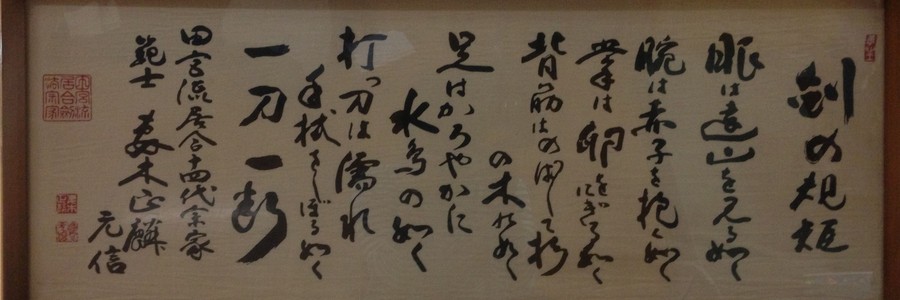 剣の規矩
眼は遠山を見る如く
腕は赤子を抱く如く
掌は卵をにぎる如く
背筋はのばして杉
の木の如く
足はかろやかに
水鳥の如く
打つ刀は濡れ
手拭をしぼる如く
一刀一断
田宮流居合十四代宗家
範士 妻木正麟
元信